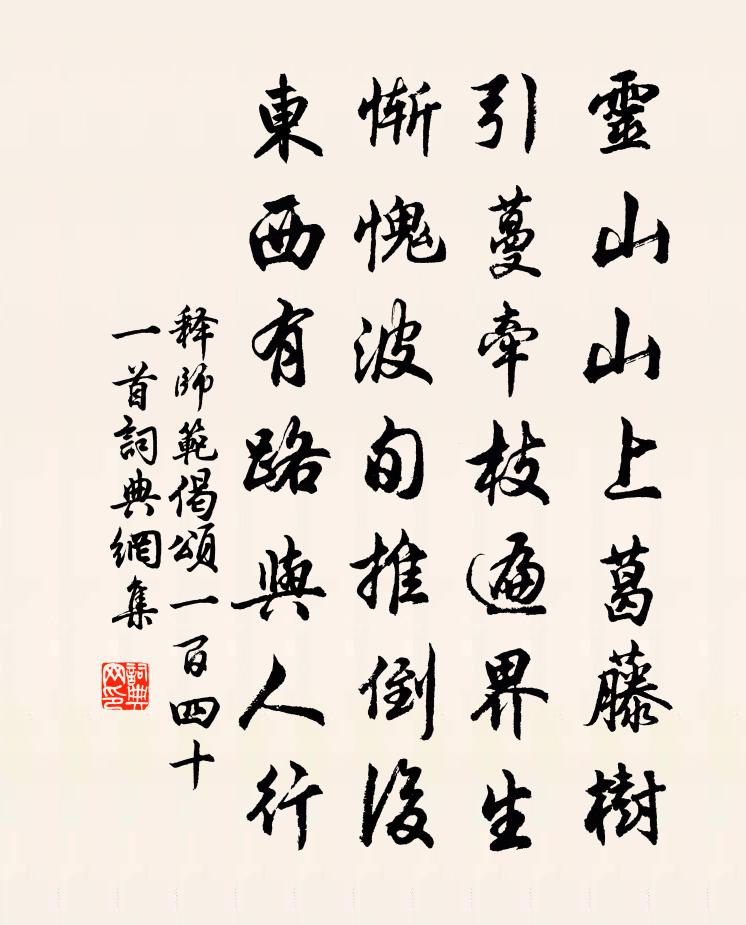 靈山山上葛藤樹
引蔓牽枝遍界生
慚愧波旬推倒後
東西有路與人行
释師範偈頌一百四十
一首詞典網集
詞典
网印